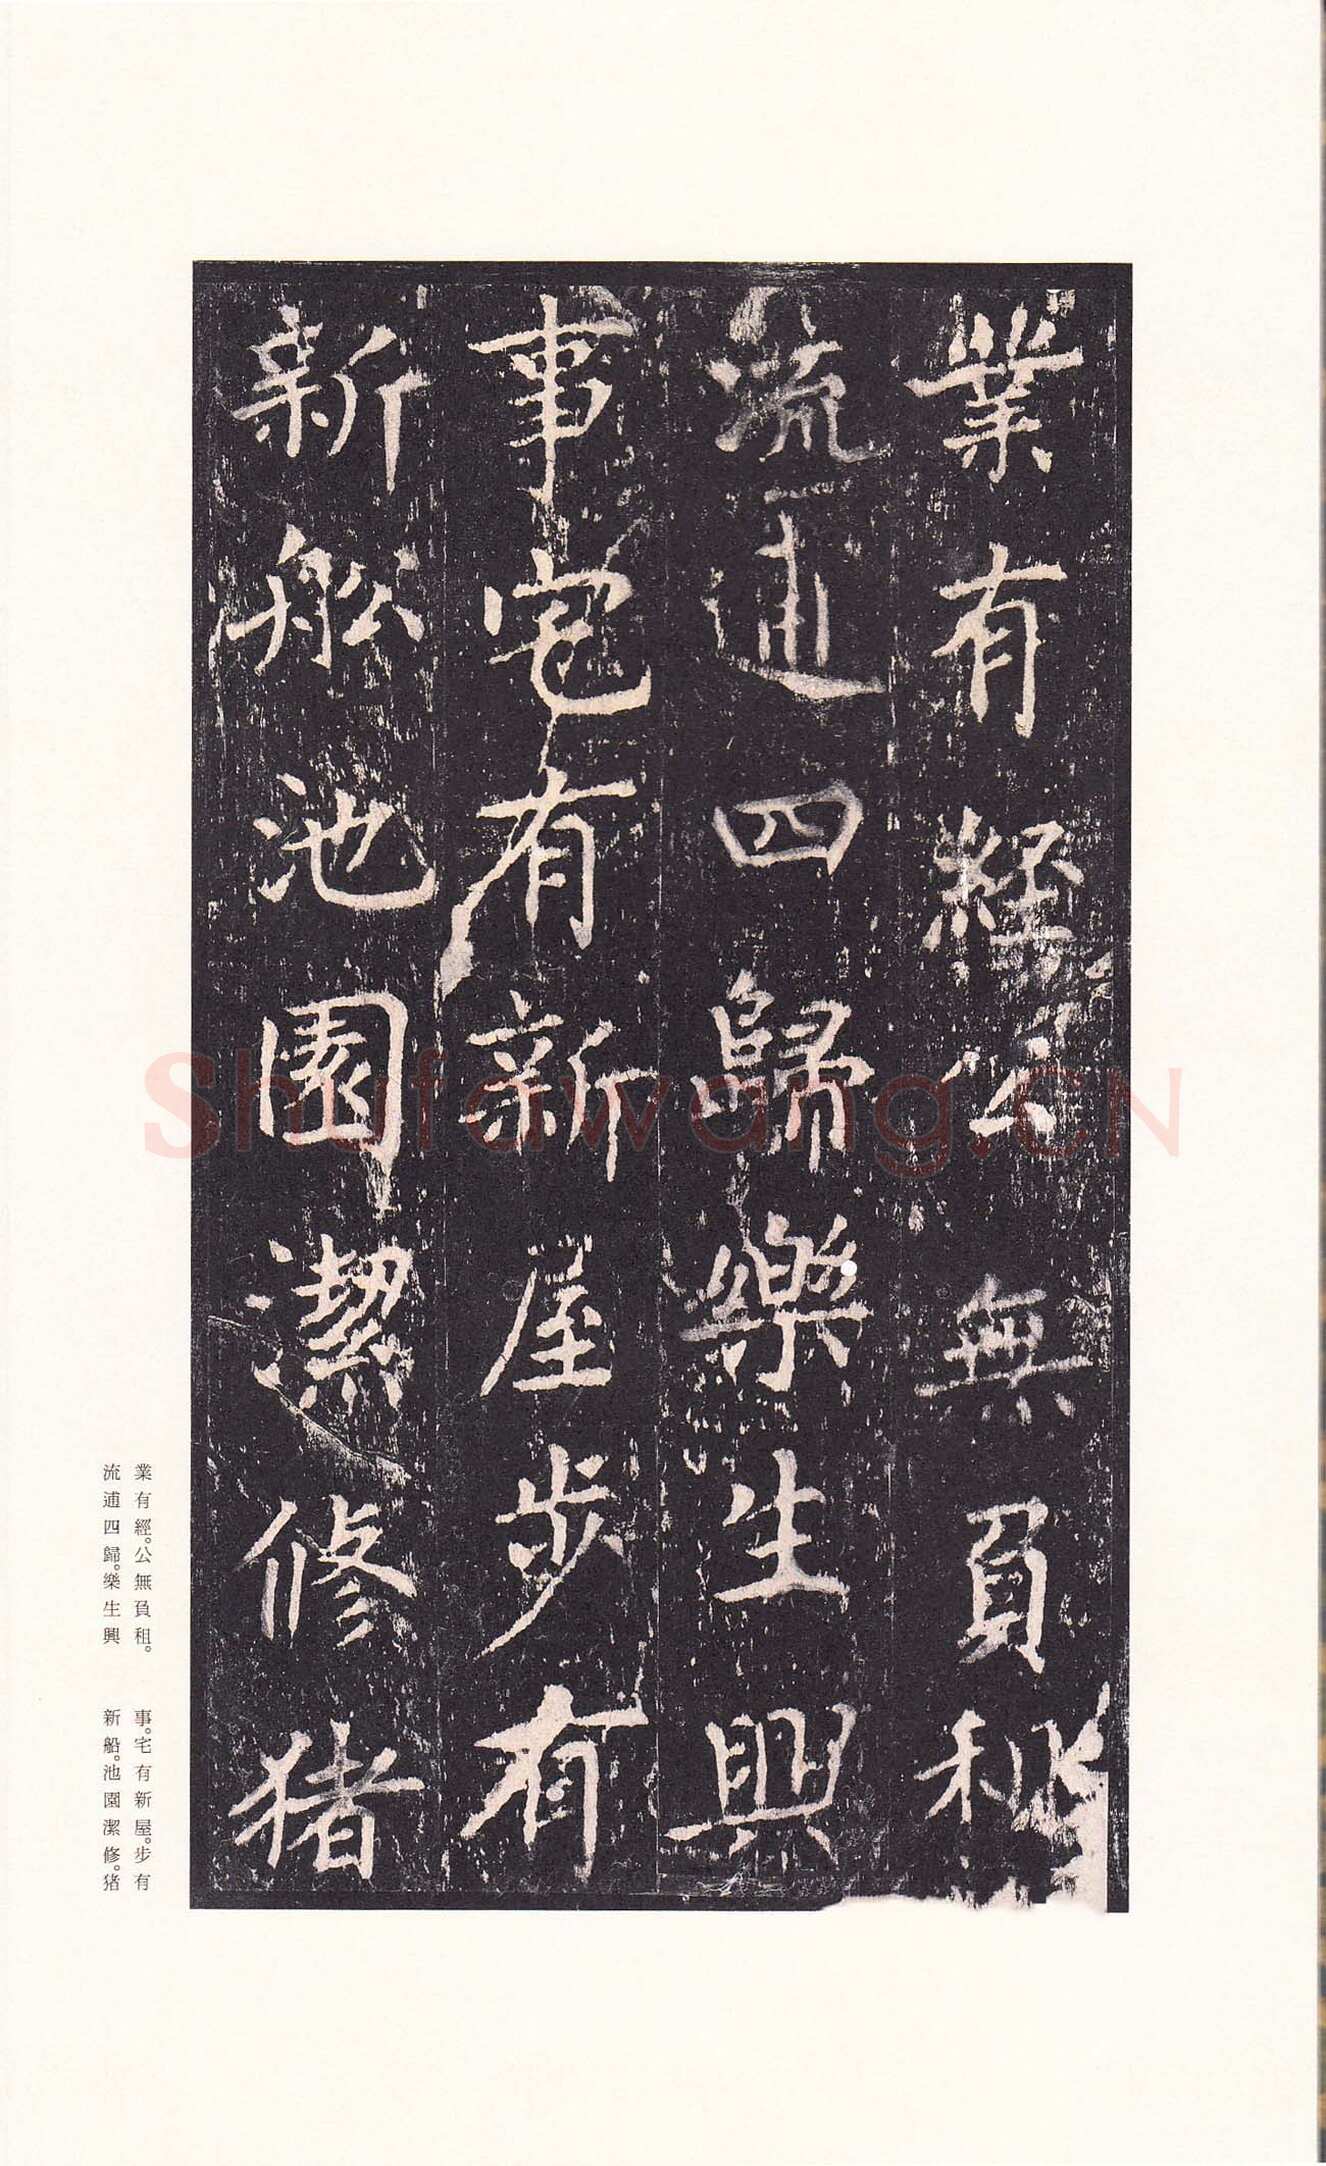 業有經公無負租
流逋四歸樂生興
事宅有新屋步有
新船池園潔修猪
業有經。公無負租。
流逋四歸。樂生興
事。宅有新屋。步有
新船。池園潔修。猪
Shufawang.CN